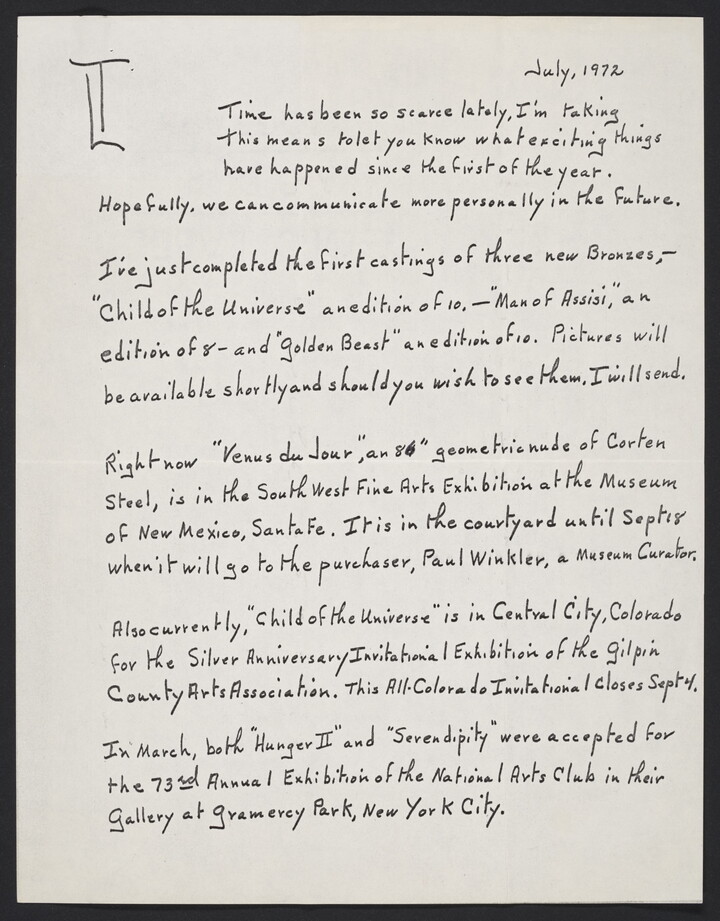 July, 1972
Time has been so scarce lately, I'm taking
this means to let you know what exciting things
have happened since the first of the year.
Hopefully, we can communicate more personally in the future.
I've just completed the first castings of three new Bronzes,—
"Child of the Universe" an edition of 10.—"Man of Assisi," an
edition of 8- and "Golden Beast" an edition of 10. Pictures will
be available shortly and should you wish to see them, I will send.
Right now "Venus du Jour", an " geometric nude of Corten
Steel, is in the SouthWest Fine Arts Exhibition at the Museum
of New Mexico, Santa Fe. It is in the courtyard until Sept 18
when it will go to the purchaser, Paul Winkler, a Museum Curator.
Also currently, "Child of the Universe" is in Central City, Colorado
for the Silver Anniversary Invitational Exhibition of the Gilpin
County Arts Association. This All-Colorado Invitational closes Sept 4.
In March, both "Hunger II" and "Serendipity" were accepted for
the 73rd Annual Exhibition of the National Arts Club in their
Gallery at Gramercy Park, New York City.